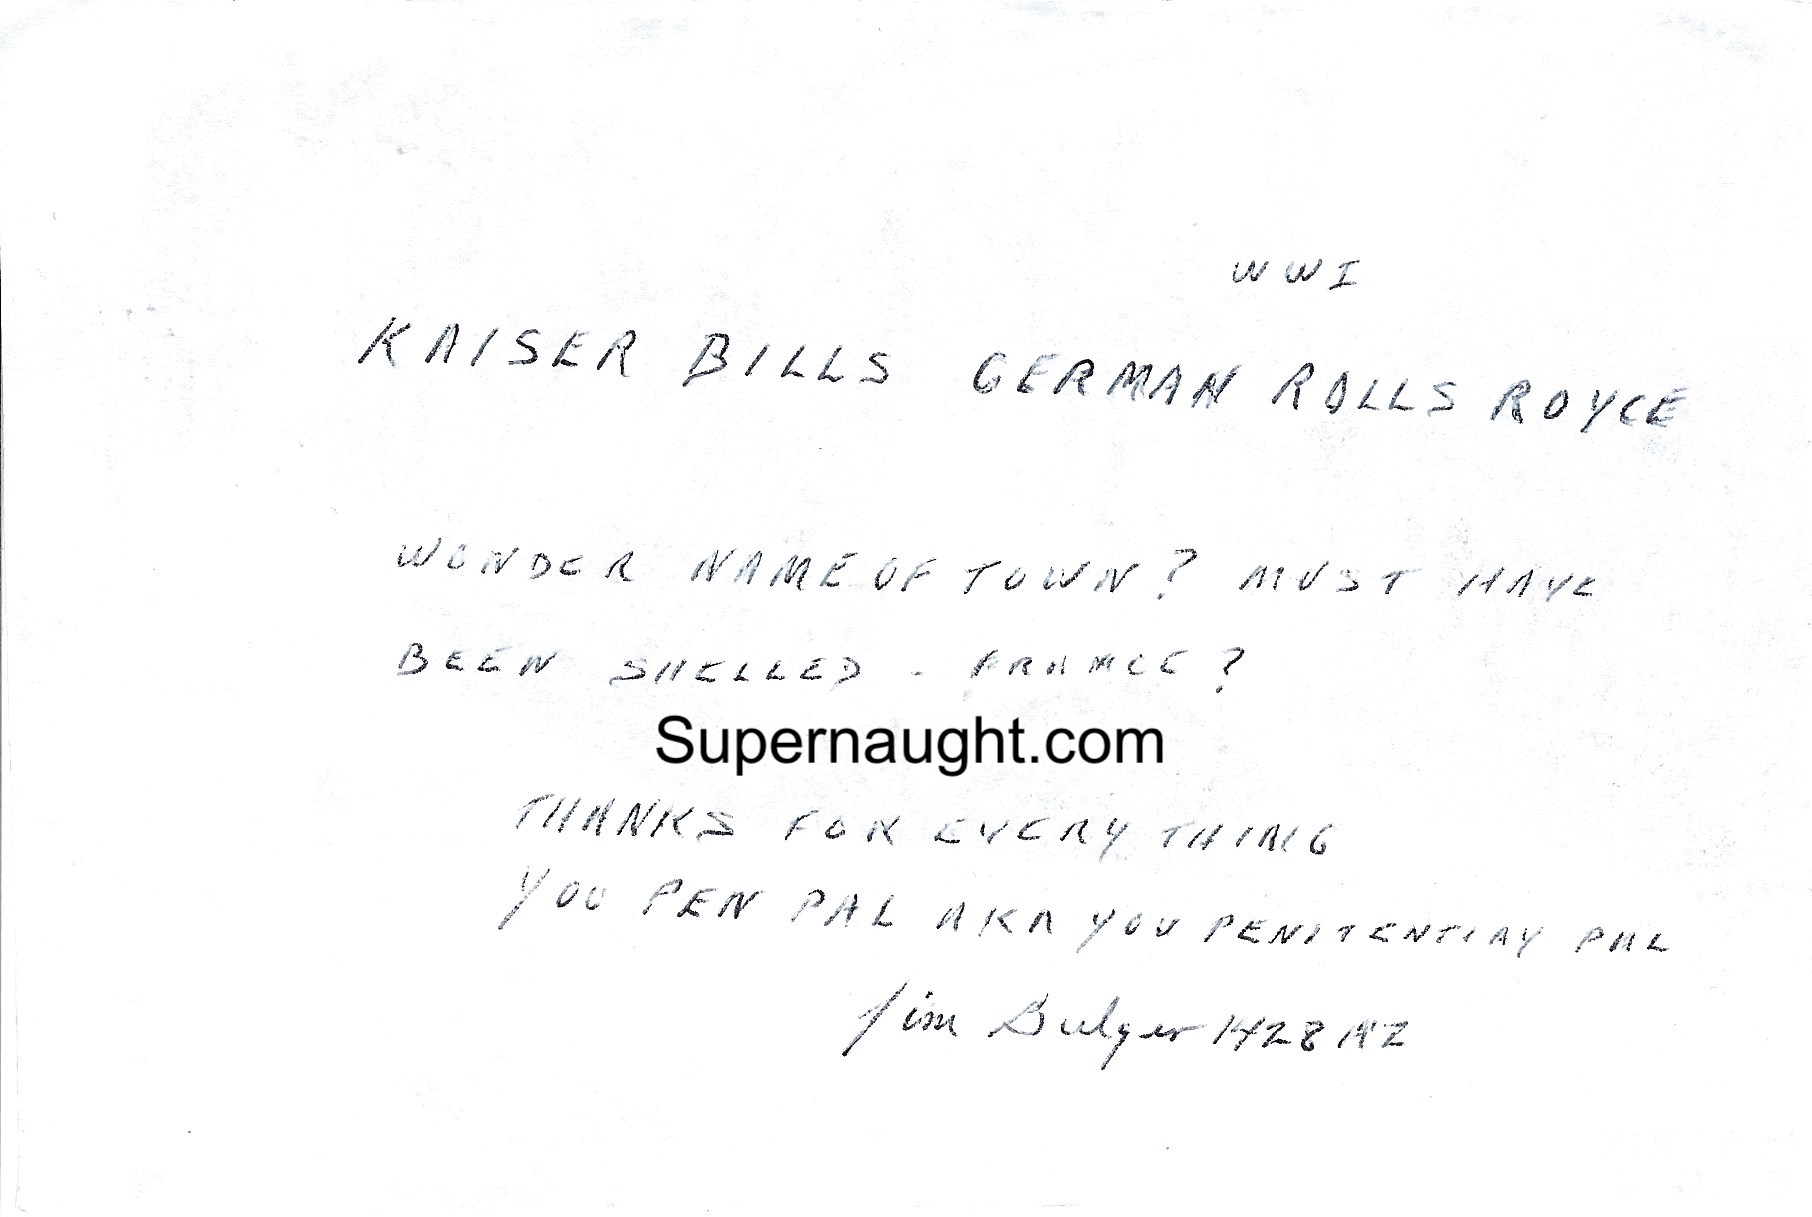 WWI
KAISER BILLS GERMAN ROLLS ROYCE
WONDER NAME OF TOWN? MUST HAVE
BEEN SHELLED - FRANCE?
Supernaught.com
THANKS FOR EVERY THING
YOU PEN PAL AKA YOU PENITENTIAY PAL
Jim Bulger 1428 AZ